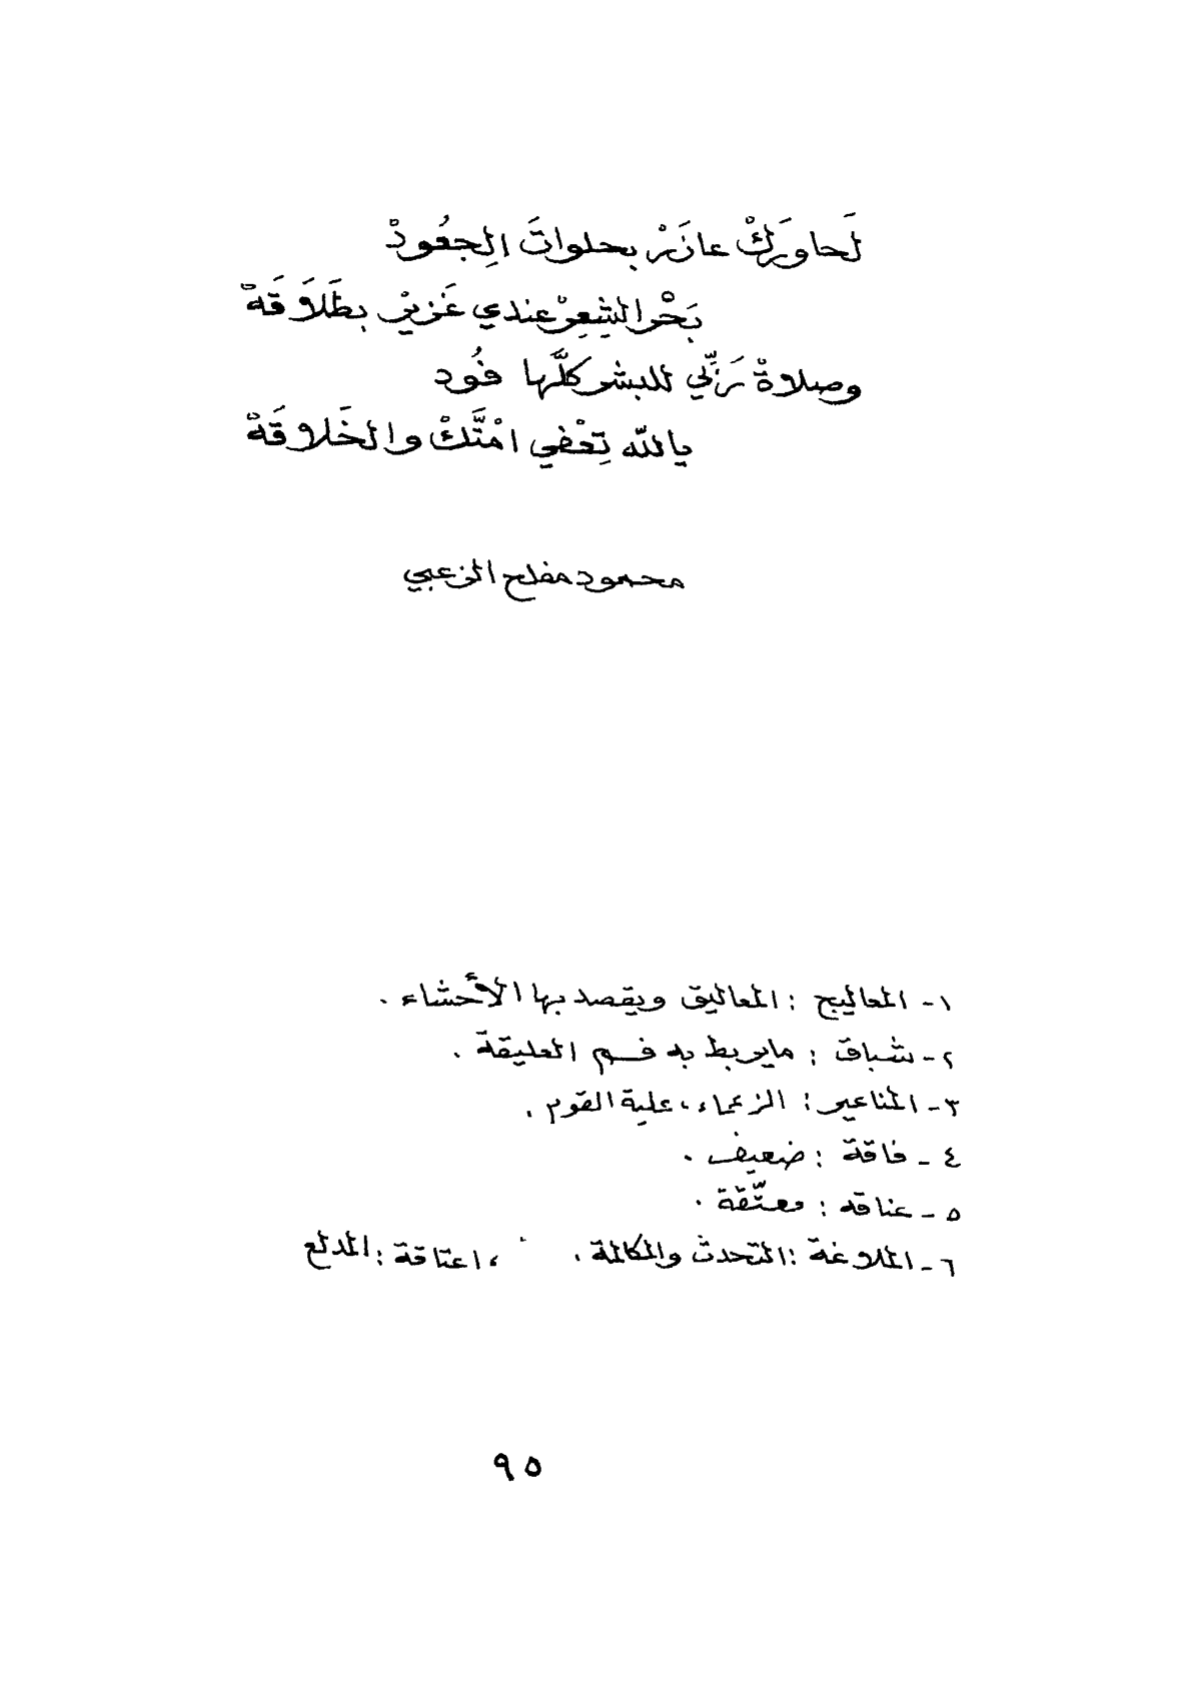 لَحاورَكْ عازَرْ بحلواتَ الِجعُودْ
بَحْر الشِعِرْ عندي غَزيرْ بطَلَاقَةْ
وصلاةْ رَبِّي للبشر كلَّها فُود
يالله تِعْفي امْتَّكْ والخَلاقَةْ
محمود مفلح الزعبي
١- المعاليج : المعاليق ويقصد بها الأحشاء .
٢- شباق : مايربط به فم العليقة .
٣- المناعير : الزعماء ، علية القوم .
٤- فاقة : ضعيف .
٥- عناقه : معتّقة .
٦- الملاوغة : التحدث والمكالمة . ، اعتاقة : المدلع
٩٥